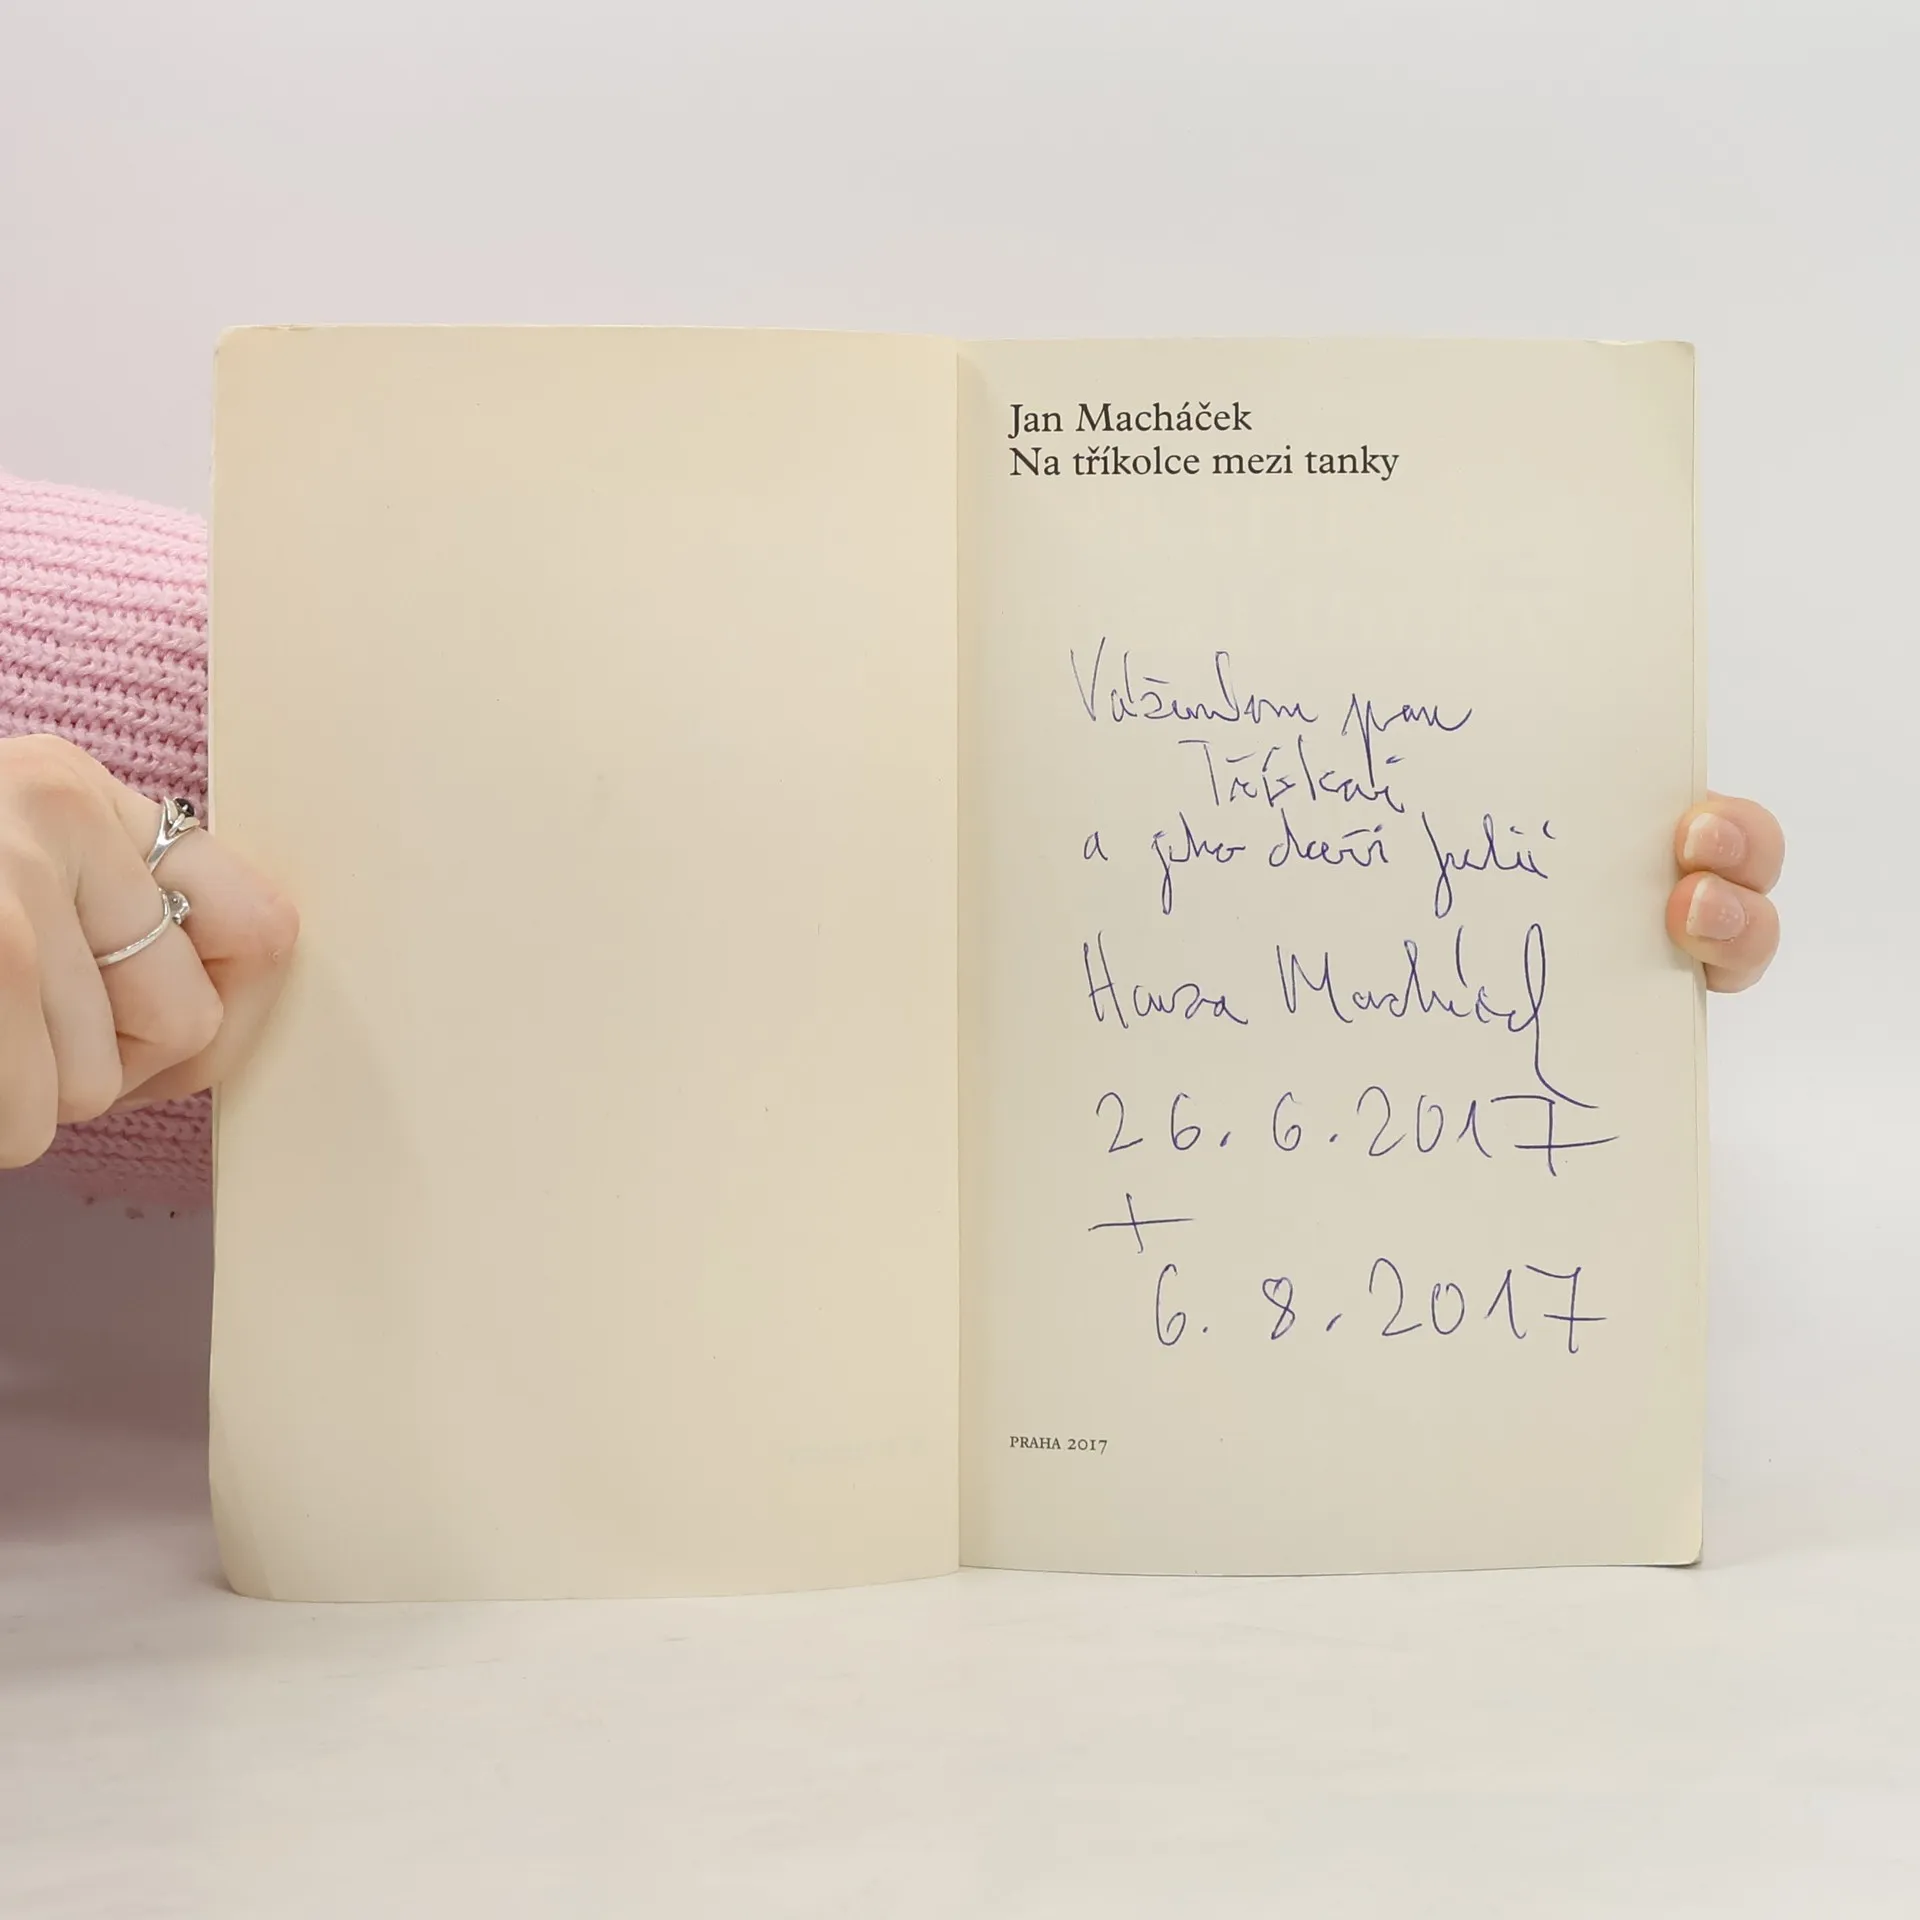 Jan Macháček
Na tříkolce mezi tanky
Váženému panu
a jeho
Honza Macháček
26. 6. 2017
+
6. 8. 2017
PRAHA 2017